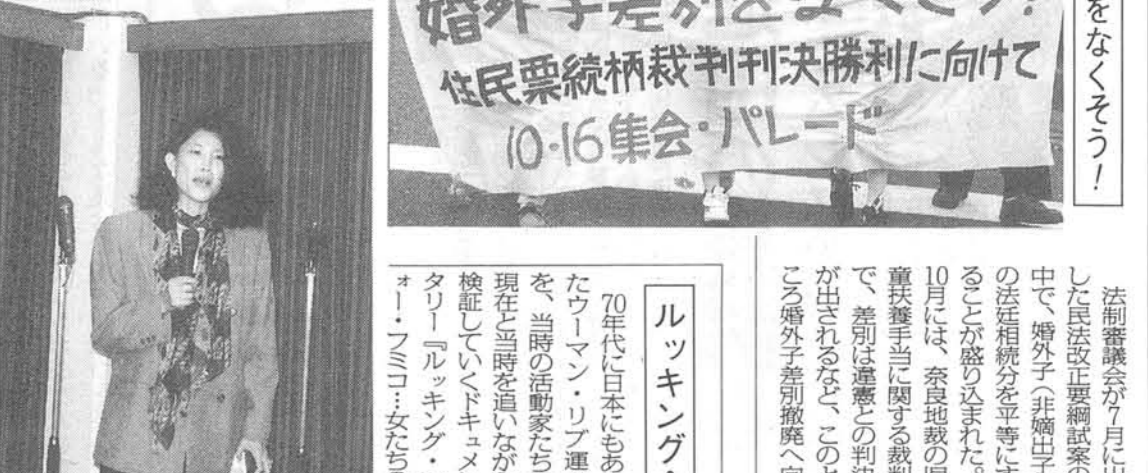 をなくそう！
婚外子差別をなくそう！
住民票続柄裁判判決勝利に向けて
10・16集会・パレード
法制審議会が7月に出
した民法改正要綱試案の
中で、婚外子（非嫡出子
の法廷相続分を平等にす
ることが盛り込まれた。
10月には、奈良地裁の児
童扶養手当に関する裁判
で、差別は違憲との判決
が出されるなど、このと
ころ婚外子差別撤廃へ向
ルッキング・
70年代に日本にもあ
たウーマン・リブ運
を、当時の活動家たち
現在と当時を追いなが
検証していくドキュメ
タリー『ルッキング・
ォー・フミコ…女たち